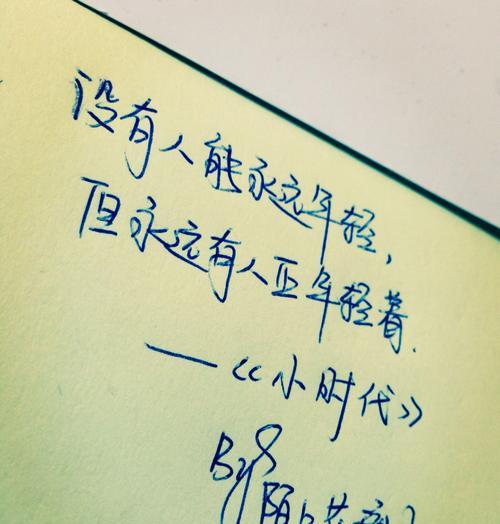 没有人能永远年轻,
但永远有人正年轻着.
——《小时代》
By